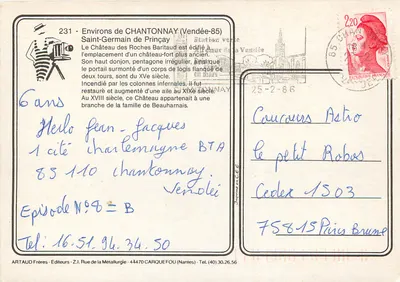 231 - Environs de CHANTONNAY (Vendée-85)
Saint-Germain de Prinçay
Le Château des Roches Baritaud est édifié à
l'emplacement d'un château-fort plus ancien.
Son haut donjon, pentagone irrégulier, abritait
le portail surmonté d'un corps de logis flanqué de
deux tours, sont du XVe siècle.
Incendié par les colonnes infernales, il fut
restauré et augmenté d'une aile au XIXe siècle.
Au XVIIIe siècle, ce Château appartenait à une
branche de la famille de Beauharnais.
6 ans
Herlo Jean-Jacques
1 cité charlemagne BTA
85110 chantonnay.
Vendée
Episode N°8 = B
Tel: 16.51.94.34.50
ARTAUD Frères - Editeurs - Z.I. Rue de la Métallurgie - 44470 CARQUEFOU (Nantes) - Tél. (40) 30.26.56
Station verte
Au cœur de la Vendée
25-2-86
2,20
Concours Astro
le petit Robos
Cedex 1503
75815 Paris Brune